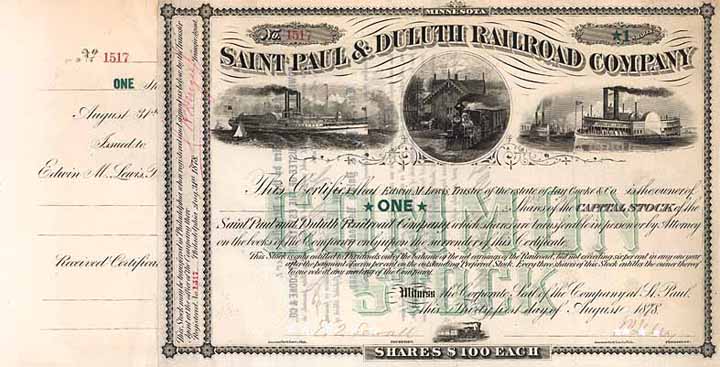 No 1517
ONE Sh
August 31st
Issued to
Edwin M. Lewis, T
Received Certifica
MINNESOTA
No. 1517
★1
SAINT PAUL & DULUTH RAILROAD COMPANY
This Certifies that Edwin M. Lewis, Trustee of the estate of Jay Cooke & Co. is the owner of
★ONE★ Shares of the CAPITAL STOCK of the
Saint Paul and Duluth Railroad Company, which shares are transferable in person or by Attorney
on the books of the Company only upon the surrender of this Certificate.
This Stock is only entitled to Dividends out of the balance of the net earnings of the Railroad, but not exceeding six per cent in any one year
after the payment of seven per cent on the outstanding Preferred Stock. Every three shares of this Stock entitles the owner thereof
to one vote at any meeting of the Company.
COMMON
STOCK
Witness the Corporate Seal of the Company at St. Paul,
this Thirty first day of August 1878.
SHARES $100 EACH
This Stock may be transferred in Philadelphia when registered and signed as below by the Transfer
Agent at the office of the Company there
Registered No. 1517 Philadelphia Aug 31st 1878
Transfer Agent